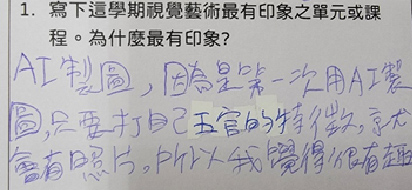 1. 寫下這學期視覺藝術最有印象之單元或課
程。為什麼最有印象?
AI製圖，因為是第一次用AI製
圖，只要打自己五官的特徵，就
會有照片，所以我覺得很有趣